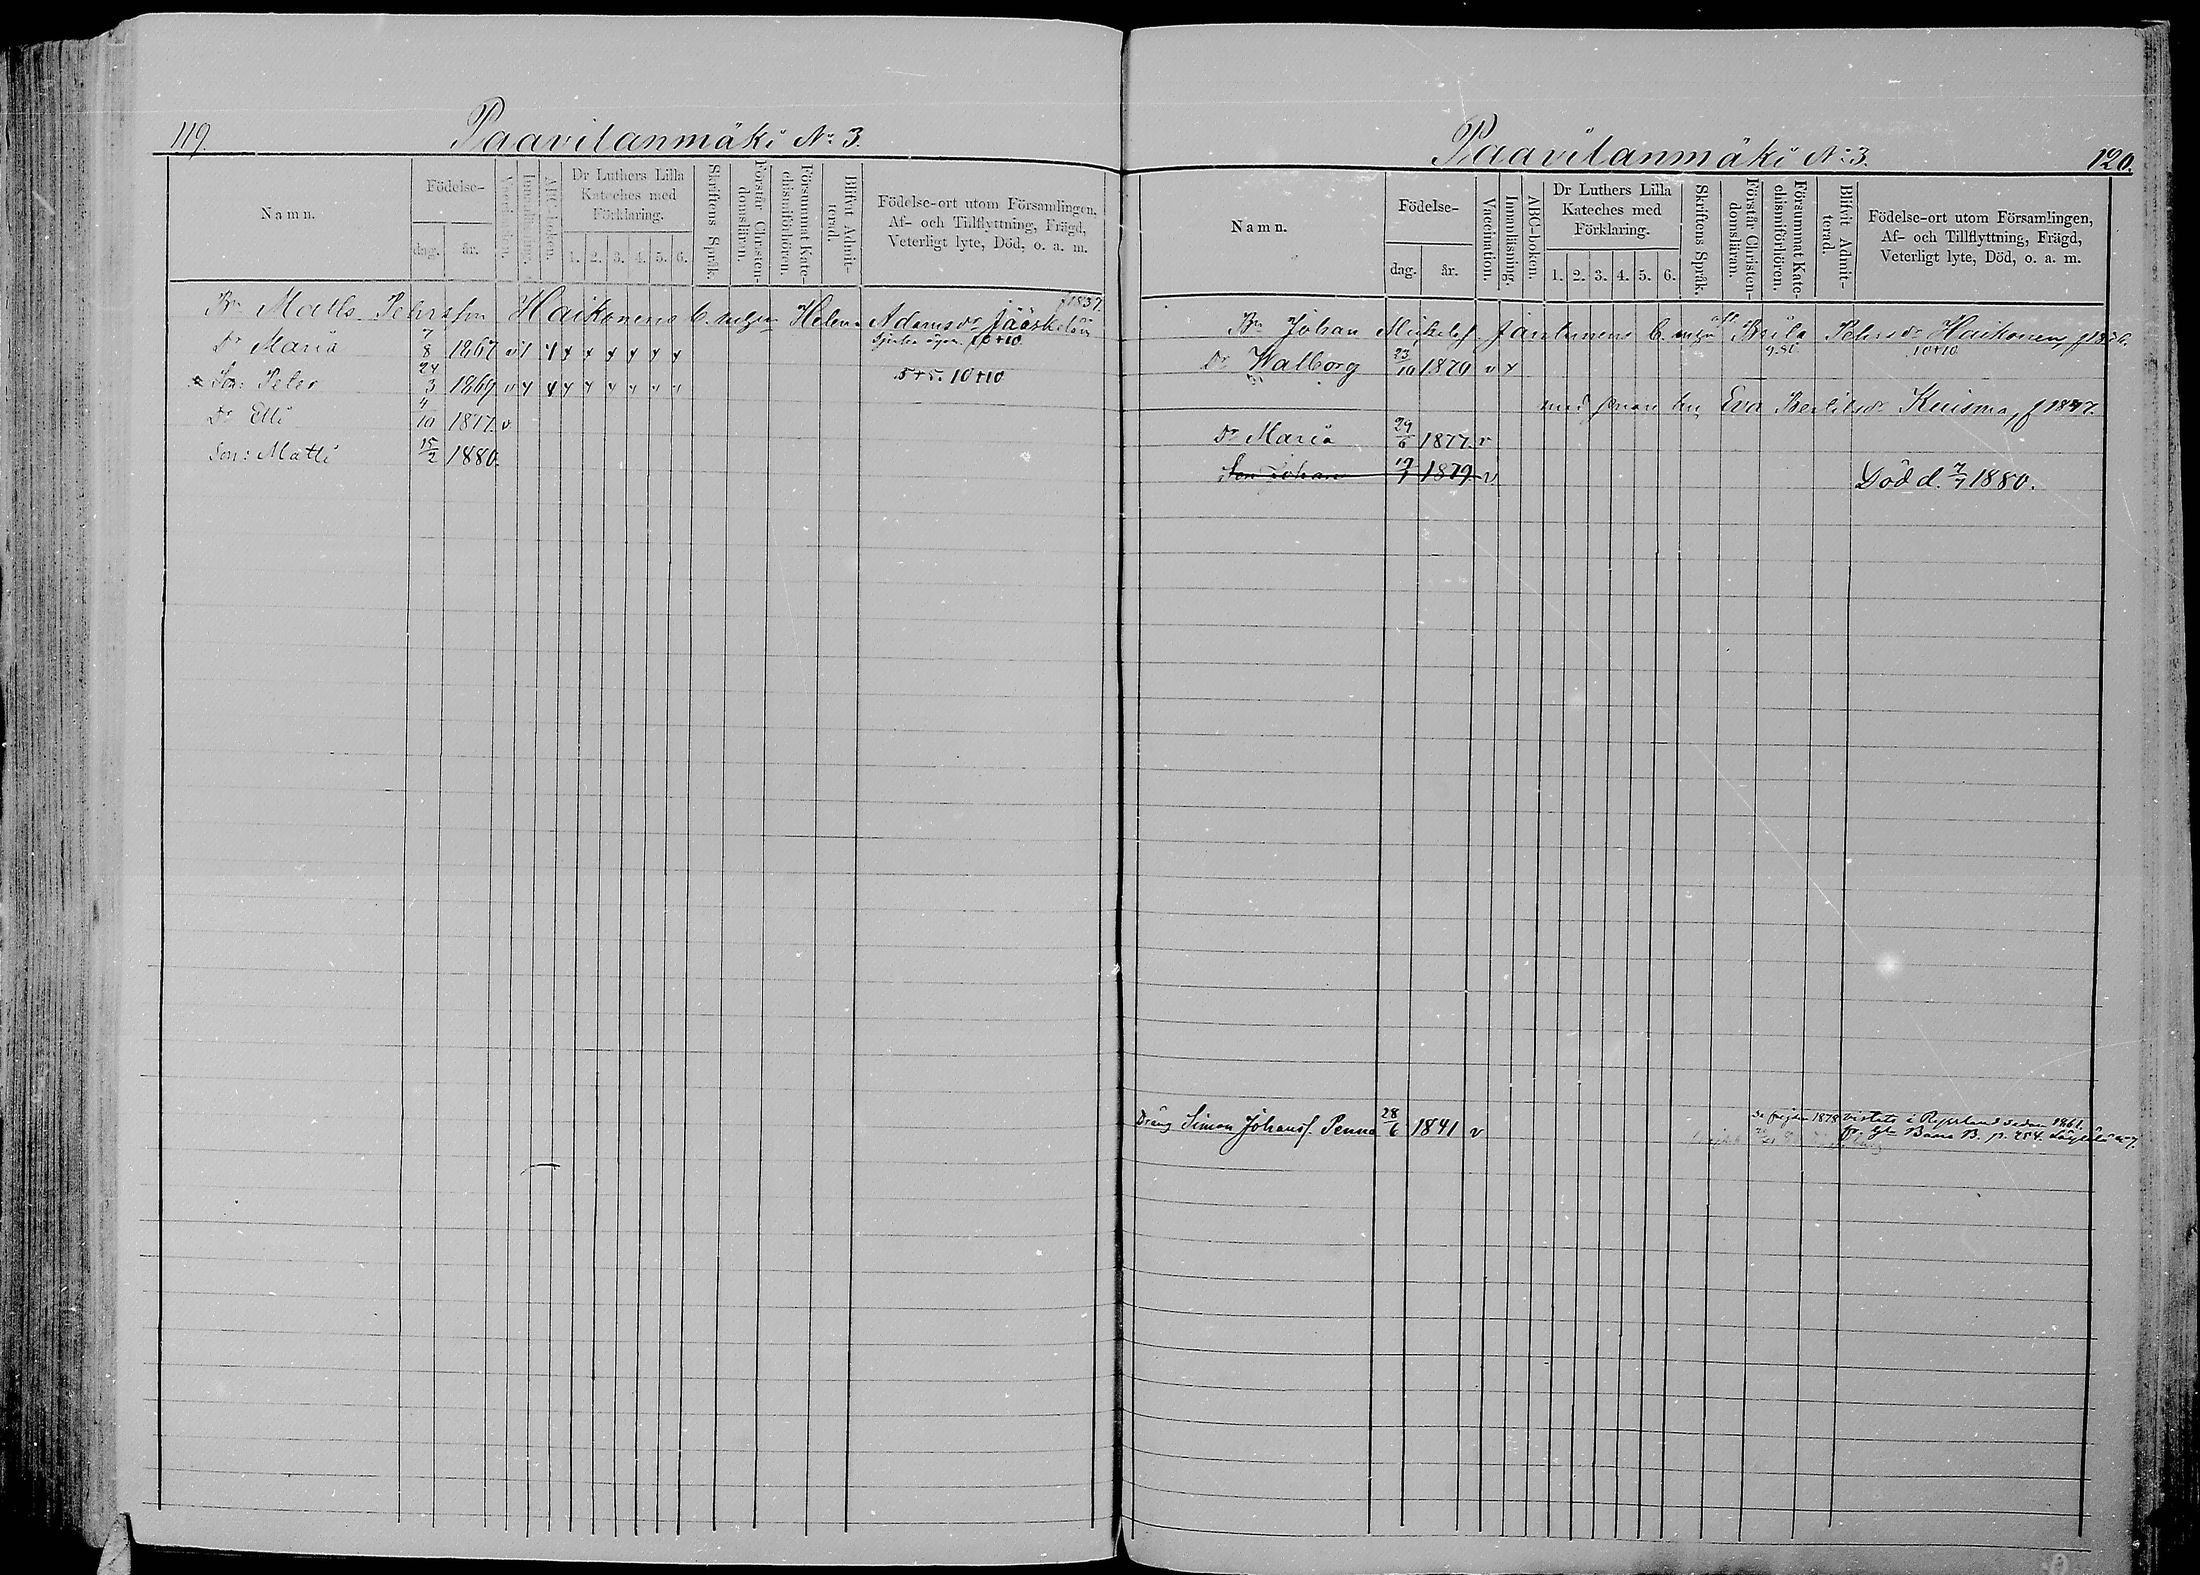 119.
Paavilanmäki No 3.
Namn.
Födelse-
dag.
år.
Vaccination.
Innanläsning.
ABC-boken.
Dr Luthers Lilla
Kateches med
Förklaring.
1. 2. 3. 4. 5. 6.
Skriftens Språk.
Förstår Christen-
domsläran.
Försummat Kate-
chismiförhören.
Blifvit Admit-
terad.
Födelse-ort utom Församlingen,
Af- och Tillflyttning, Frägd,
Veterligt lyte, Död, o. a. m.
Bn Matts Pehrsson Haikonens b. Helena Adamsdr Jääskeläin f 1837
Dr Maria 7/8 1867 10+10
Son: Peter 24/3 1869 v 5+5. 10+10
Dr Elli 4/10 1877 v
Son: Matti 15/2 1880.
Paavilanmäki No 3.
120.
Namn.
Födelse-
dag.
år.
Vaccination.
Innanläsning.
ABC-boken.
Dr Luthers Lilla
Kateches med
Förklaring.
1. 2. 3. 4. 5. 6.
Skriftens Språk.
Förstår Christen-
domsläran.
Försummat Kate-
chismiförhören.
Blifvit Admit-
terad.
Födelse-ort utom Församlingen,
Af- och Tillflyttning, Frägd,
Veterligt lyte, Död, o. a. m.
Bn Johan Michelsf Jantunens b. Beila Pehrsdr Haikonen
10+10
Dr Walborg 23/10 1870 v
med Eva Bertilsdr Kuisma, f 1847.
Dr Maria 29/6 1877 v
Son Johan 1879 v Död d. 7/7 1880.
Dräng Simon Johansf. Penna 28/6 1841 v 1878 vistats i Ryssland sedan 1861.
B. p. 254.